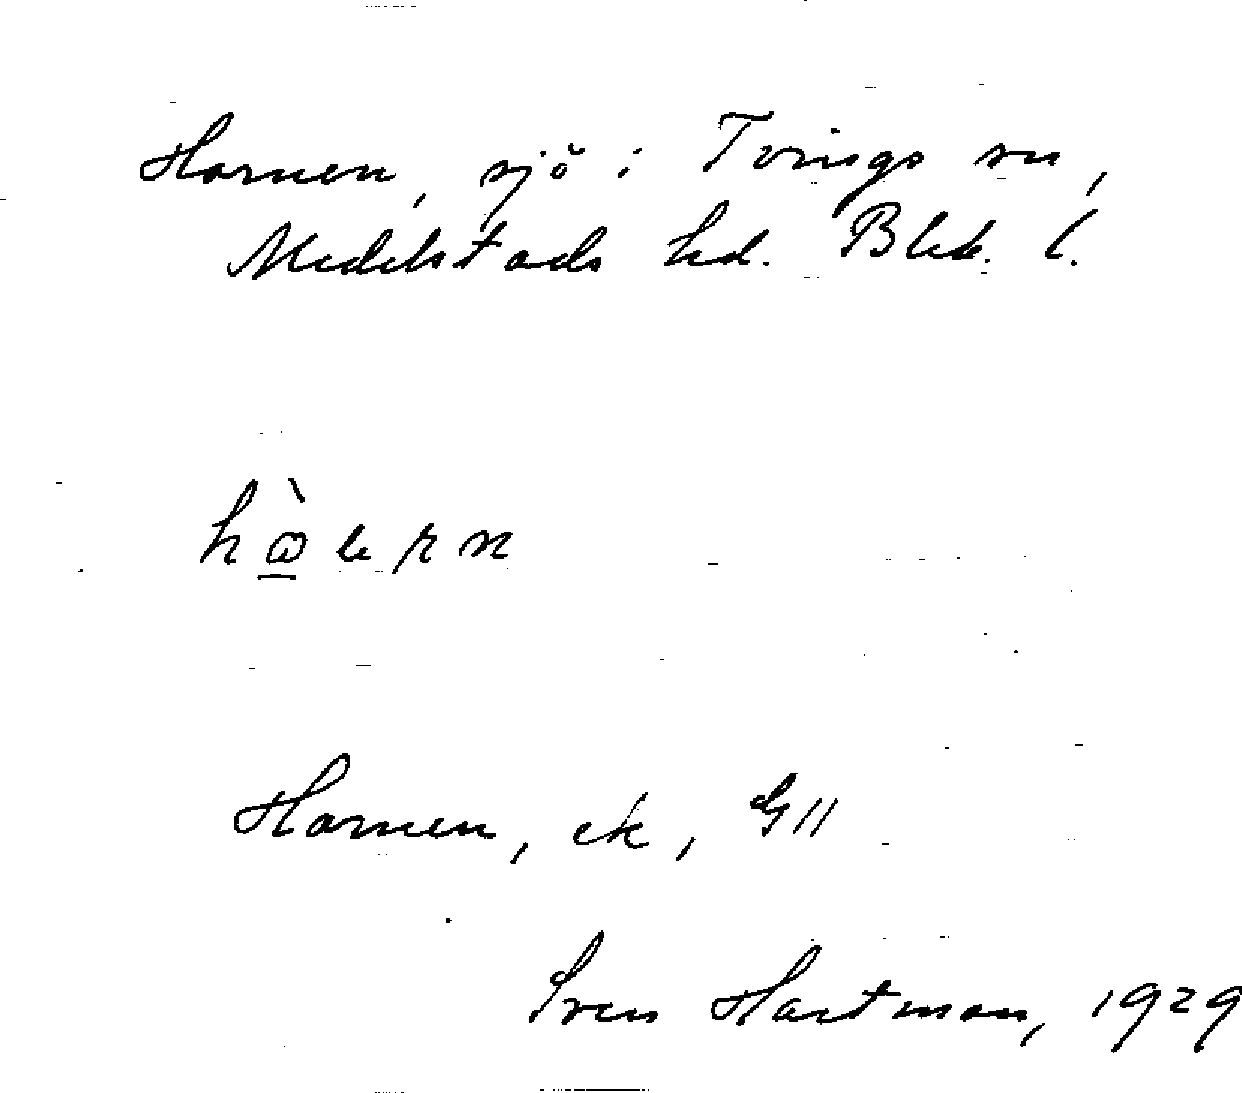 Hornen, sjö i Tvings sn,
Medelstads hd. Blek. l.
Hornen, ek, G11
Sven Hartman, 1929